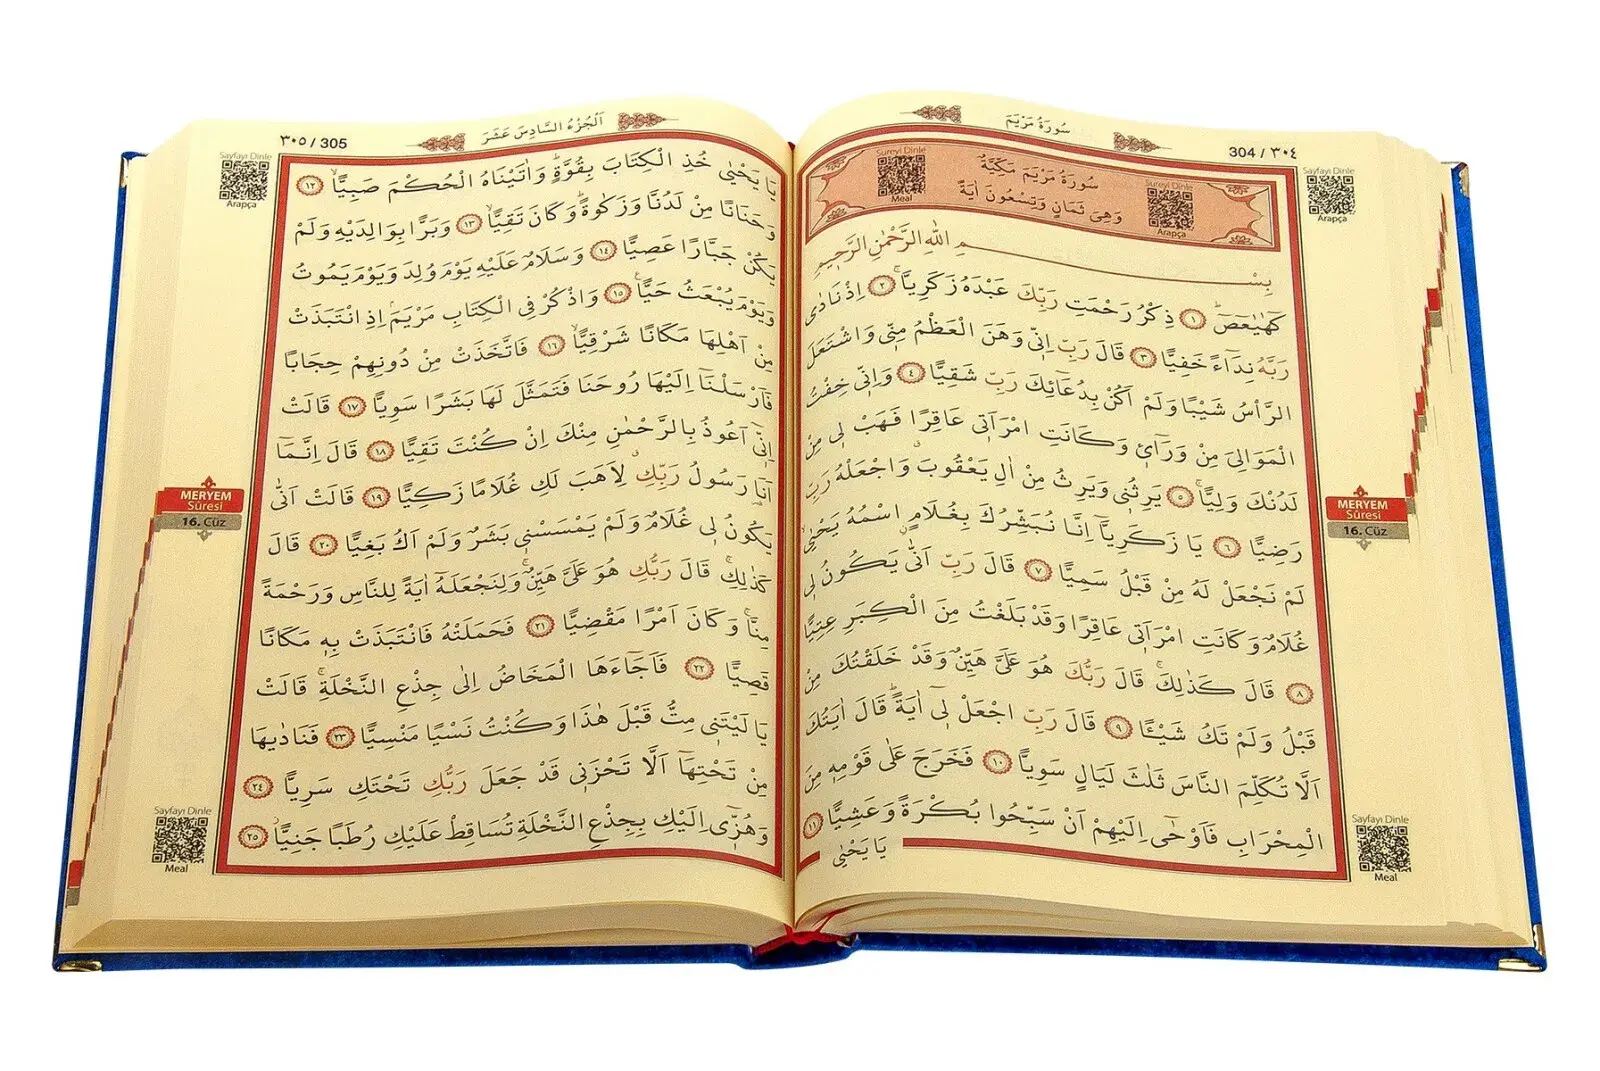 سُورَةُ مَرْيَمَ
304 / ٣٠٤
Sayfayı Dinle
Arapça
Sureyi Dinle
Meal
سُورَةُ مَرْيَمَ مَكِّيَّةٌ
وَهِىَ ثَمَانٍ وَتِسْعُونَ اٰيَةً
Sureyi Dinle
Arapça
بِسْمِ اللّٰهِ الرَّحْمٰنِ الرَّحٖيمِ
كٓهٰيٰعٓصٓ ۚ ﴿١﴾ ذِكْرُ رَحْمَتِ رَبِّكَ عَبْدَهُ زَكَرِيَّا ۚ ﴿٢﴾ اِذْ نَادٰى
رَبَّهُ نِدَٓاءً خَفِيًّا ﴿٣﴾ قَالَ رَبِّ اِنّٖى وَهَنَ الْعَظْمُ مِنّٖى وَاشْتَعَلَ
الرَّأْسُ شَيْبًا وَلَمْ اَكُنْ بِدُعَٓائِكَ رَبِّ شَقِيًّا ﴿٤﴾ وَاِنّٖى خِفْتُ
الْمَوَالِىَ مِنْ وَرَٓاءٖى وَكَانَتِ امْرَاَتٖى عَاقِرًا فَهَبْ لٖى مِنْ
لَدُنْكَ وَلِيًّا ۙ ﴿٥﴾ يَرِثُنٖى وَيَرِثُ مِنْ اٰلِ يَعْقُوبَ وَاجْعَلْهُ رَبِّ
رَضِيًّا ﴿٦﴾ يَا زَكَرِيَّٓا اِنَّا نُبَشِّرُكَ بِغُلَامٍ اسْمُهُ يَحْيٰى ۙ
لَمْ نَجْعَلْ لَهُ مِنْ قَبْلُ سَمِيًّا ﴿٧﴾ قَالَ رَبِّ اَنّٰى يَكُونُ لٖى
غُلَامٌ وَكَانَتِ امْرَاَتٖى عَاقِرًا وَقَدْ بَلَغْتُ مِنَ الْكِبَرِ عِتِيًّا
﴿٨﴾ قَالَ كَذٰلِكَ ۚ قَالَ رَبُّكَ هُوَ عَلَىَّ هَيِّنٌ وَقَدْ خَلَقْتُكَ مِنْ
قَبْلُ وَلَمْ تَكُ شَيْـًٔا ﴿٩﴾ قَالَ رَبِّ اجْعَلْ لٖٓى اٰيَةً ۜ قَالَ اٰيَتُكَ
اَلَّا تُكَلِّمَ النَّاسَ ثَلٰثَ لَيَالٍ سَوِيًّا ﴿١٠﴾ فَخَرَجَ عَلٰى قَوْمِهٖ مِنَ
الْمِحْرَابِ فَاَوْحٰٓى اِلَيْهِمْ اَنْ سَبِّحُوا بُكْرَةً وَعَشِيًّا ﴿١١﴾
يَا يَحْيٰى
MERYEM
Sûresi
16. Cüz
Sayfayı Dinle
Meal
اَلْجُزْءُ السَّادِسَ عَشَرَ
٣٠٥ / 305
Sayfayı Dinle
Arapça
يَا يَحْيٰى خُذِ الْكِتَابَ بِقُوَّةٍ ۜ وَاٰتَيْنَاهُ الْحُكْمَ صَبِيًّا ۙ ﴿١٢﴾
وَحَنَانًا مِنْ لَدُنَّا وَزَكٰوةً ۜ وَكَانَ تَقِيًّا ۙ ﴿١٣﴾ وَبَرًّا بِوَالِدَيْهِ وَلَمْ
يَكُنْ جَبَّارًا عَصِيًّا ﴿١٤﴾ وَسَلَامٌ عَلَيْهِ يَوْمَ وُلِدَ وَيَوْمَ يَمُوتُ
وَيَوْمَ يُبْعَثُ حَيًّا ۟ ﴿١٥﴾ وَاذْكُرْ فِى الْكِتَابِ مَرْيَمَ ۢ اِذِ انْتَبَذَتْ
مِنْ اَهْلِهَا مَكَانًا شَرْقِيًّا ۙ ﴿١٦﴾ فَاتَّخَذَتْ مِنْ دُونِهِمْ حِجَابًا
فَاَرْسَلْنَٓا اِلَيْهَا رُوحَنَا فَتَمَثَّلَ لَهَا بَشَرًا سَوِيًّا ﴿١٧﴾ قَالَتْ
اِنّٖٓى اَعُوذُ بِالرَّحْمٰنِ مِنْكَ اِنْ كُنْتَ تَقِيًّا ﴿١٨﴾ قَالَ اِنَّمَٓا
اَنَا رَسُولُ رَبِّكِ ۗ لِاَهَبَ لَكِ غُلَامًا زَكِيًّا ﴿١٩﴾ قَالَتْ اَنّٰى
يَكُونُ لٖى غُلَامٌ وَلَمْ يَمْسَسْنٖى بَشَرٌ وَلَمْ اَكُ بَغِيًّا ﴿٢٠﴾ قَالَ
كَذٰلِكِ ۚ قَالَ رَبُّكِ هُوَ عَلَىَّ هَيِّنٌ ۚ وَلِنَجْعَلَهُٓ اٰيَةً لِلنَّاسِ وَرَحْمَةً
مِنَّا ۚ وَكَانَ اَمْرًا مَقْضِيًّا ﴿٢١﴾ فَحَمَلَتْهُ فَانْتَبَذَتْ بِهٖ مَكَانًا
قَصِيًّا ﴿٢٢﴾ فَاَجَٓاءَهَا الْمَخَاضُ اِلٰى جِذْعِ النَّخْلَةِ ۚ قَالَتْ
يَا لَيْتَنٖى مِتُّ قَبْلَ هٰذَا وَكُنْتُ نَسْيًا مَنْسِيًّا ﴿٢٣﴾ فَنَادٰيهَا
مِنْ تَحْتِهَٓا اَلَّا تَحْزَنٖى قَدْ جَعَلَ رَبُّكِ تَحْتَكِ سَرِيًّا ﴿٢٤﴾
وَهُزّٖٓى اِلَيْكِ بِجِذْعِ النَّخْلَةِ تُسَاقِطْ عَلَيْكِ رُطَبًا جَنِيًّا ۘ ﴿٢٥﴾
MERYEM
Sûresi
16. Cüz
Sayfayı Dinle
Meal